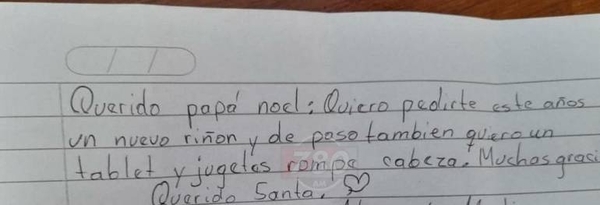 Querido papá noel: Quiero pedirte este años
un nuevo riñon y de paso tambien quero un
tablet y jugetes rompe cabeza. Muchas graci
Querido Santa.